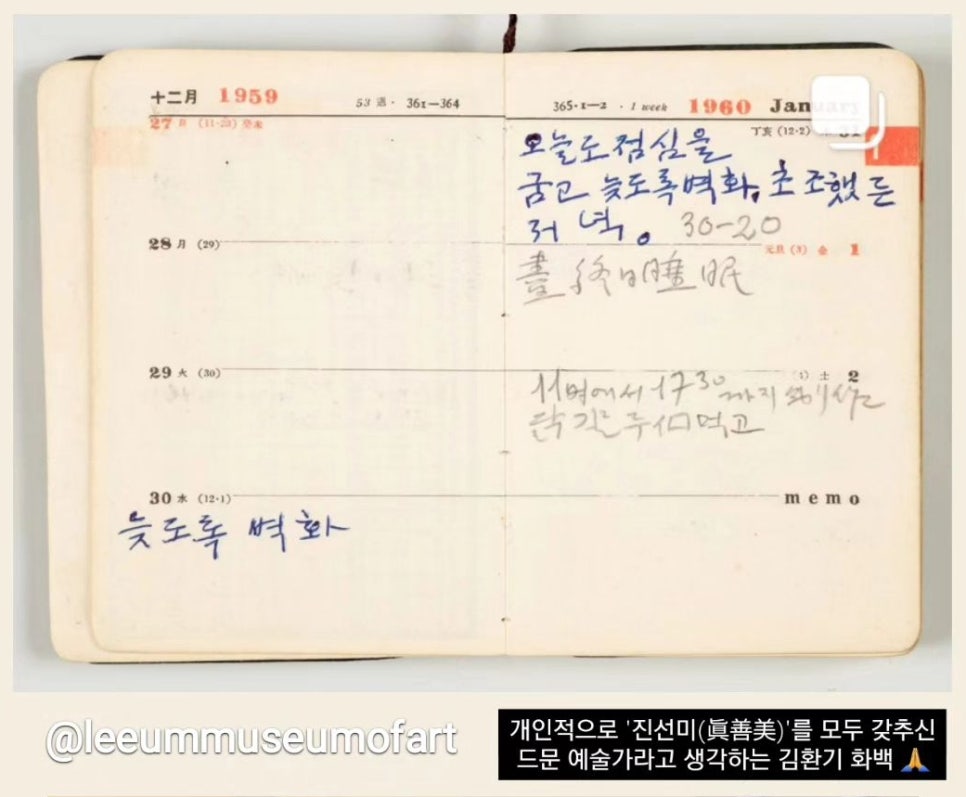 十二月 1959 53 週 · 361—364
27 日 (11·28) 癸未
28 月 (29)
29 火 (30)
30 水 (12·1)
늦도록 벽화
365·1—2 · 1 week 1960 January
丁亥 (12·2) 木 31
오늘도 점심을
굶고 늦도록 벽화. 초조했든
저녁. 30-20
元旦 (3) 金 1
晝 終日睡眠
(4) 土 2
11時에서 17 30까지
먹고
memo
@leeummuseumofart
개인적으로 '진선미(眞善美)'를 모두 갖추신
드문 예술가라고 생각하는 김환기 화백 🙏